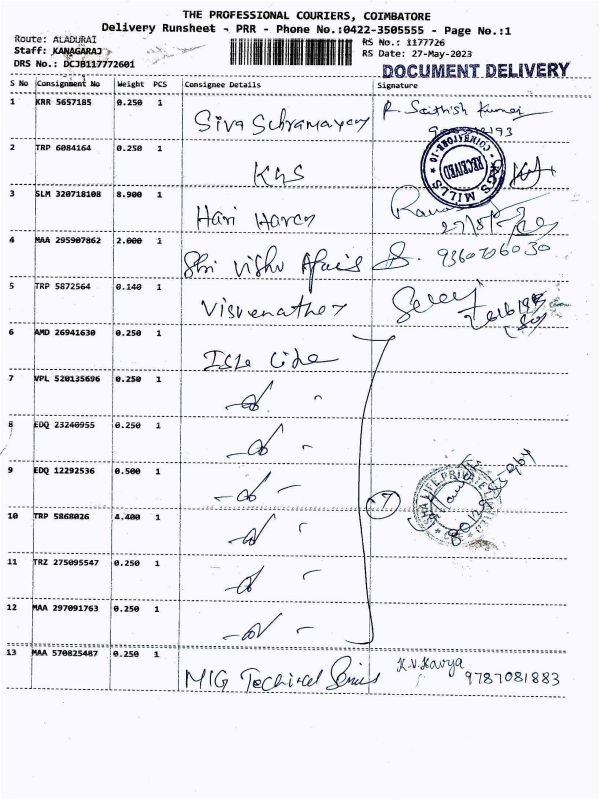 THE PROFESSIONAL COURIERS, COIMBATORE
Delivery Runsheet - PRR - Phone No.:0422-3505555 - Page No.:1
Route: ALADURAI
Staff: KANAGARAJ
DRS No.: DCJB117772601
RS No.: 1177726
RS Date: 27-May-2023
DOCUMENT DELIVERY
S No Consignment No Weight PCS Consignee Details Signature
1 KRR 5657185 0.250 1
2 TRP 6084164 0.250 1 KGS
RECEIVED
KGS MILLS
COIMBATORE-10
3 SLM 320718108 8.900 1 Hari Haran
27/5/
4 MAA 295907862 2.000 1 Shri Vishu 9360706030
5 TRP 5872564 0.140 1
6 AMD 26941630 0.250 1
7 VPL 520135696 0.250 1
8 EDQ 23240955 0.250 1
9 EDQ 12292536 0.500 1
7
LIFE PRIVATE
10 TRP 5868026 4.400 1
11 TRZ 275095547 0.250 1
12 MAA 297091763 0.250 1
13 MAA 570825487 0.250 1 MIG K.V.Kavya
9787081883